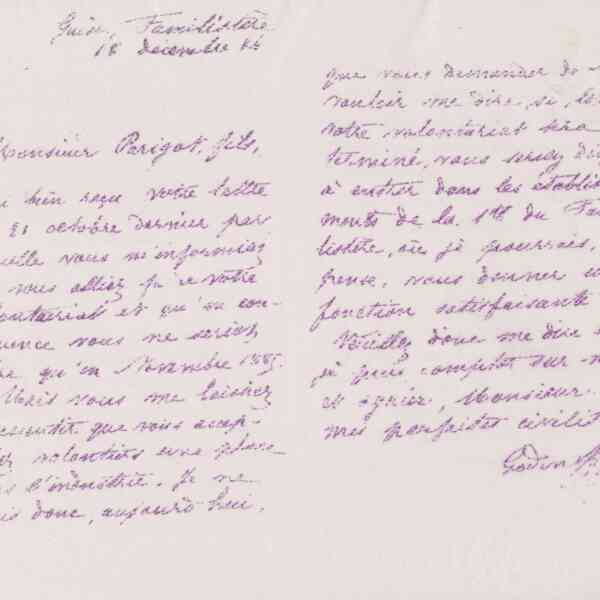 Guise, Familistère
18 décembre 84
Monsieur Parigot, fils,
bien reçu votre lettre
21 octobre dernier par
vous m'informiez
vous alliez
et qu'en con-
vous ne seriez
qu'en Novembre 1885.
Mais vous me laissez
que vous accep-
volontiers une place
l'industrie. Je ne
donc, aujourd'hui,
que vous demander de
vouloir me dire, si,
votre volontariat sera
terminé, vous seriez
à entrer dans les établis
ments de la Sté du Fa
listère, où je pourrais,
vous donner u
fonction satisfaisante
Veuillez donc me dire
je puis compter sur
et agréer, Monsieur
mes parfaites civilit
Godin